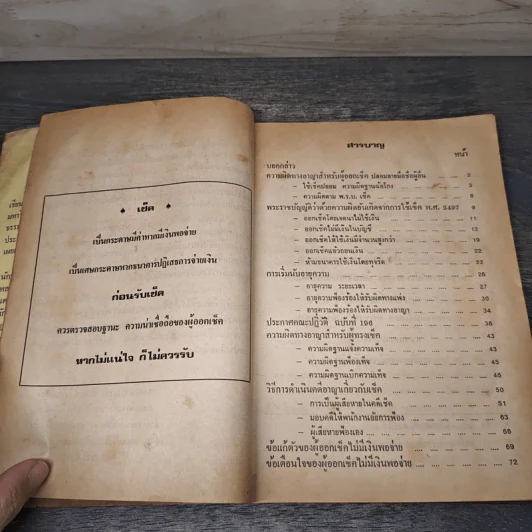 เช็ค
เป็นกระดาษมีค่าหากมีเงินพอจ่าย
เป็นเศษกระดาษหากธนาคารปฏิเสธการจ่ายเงิน
ก่อนรับเช็ค
ควรตรวจสอบฐานะ ความน่าเชื่อถือของผู้ออกเช็ค
หากไม่แน่ใจ ก็ไม่ควรรับ
สารบาญ
หน้า
บอกกล่าว
ความผิดทางอาญาสำหรับผู้ออกเช็ค ปลอมลายมือชื่อผู้อื่น 2
– ใช้เช็คปลอม ความผิดฐานฉ้อโกง 3
– ความผิดตาม พ.ร.บ. เช็ค 6
พระราชบัญญัติว่าด้วยความผิดอันเกิดจากการใช้เช็ค พ.ศ. 2497
– ออกเช็คโดยเจตนาไม่ใช้เงิน 11
– ออกเช็คไม่มีเงินในบัญชี 12
– ออกเช็คให้ใช้เงินมีจำนวนสูงกว่า 19
– ออกเช็คแล้วถอนเงิน 22
– ห้ามธนาคารใช้เงินโดยทุจริต 22
การเริ่มนับอายุความ 26
– อายุความ ระยะเวลา 27
– อายุความฟ้องร้องให้รับผิดทางแพ่ง 30
– อายุความฟ้องร้องให้รับผิดทางอาญา 34
ประกาศคณะปฏิวัติ ฉบับที่ 194 38
ความผิดทางอาญาสำหรับผู้ทรงเช็ค 43
– ความผิดฐานแจ้งความเท็จ
– ความผิดฐานฟ้องเท็จ
– ความผิดฐานเบิกความเท็จ
วิธีการดำเนินคดีอาญาเกี่ยวกับเช็ค 50
– การเป็นผู้เสียหายในคดีเช็ค 51
– มอบคดีให้พนักงานอัยการฟ้อง 63
– ผู้เสียหายฟ้องเอง 68
ข้อแก้ตัวของผู้ออกเช็คไม่มีเงินพอจ่าย 69
ข้อเตือนใจของผู้ออกเช็คไม่มีเงินพอจ่าย 72